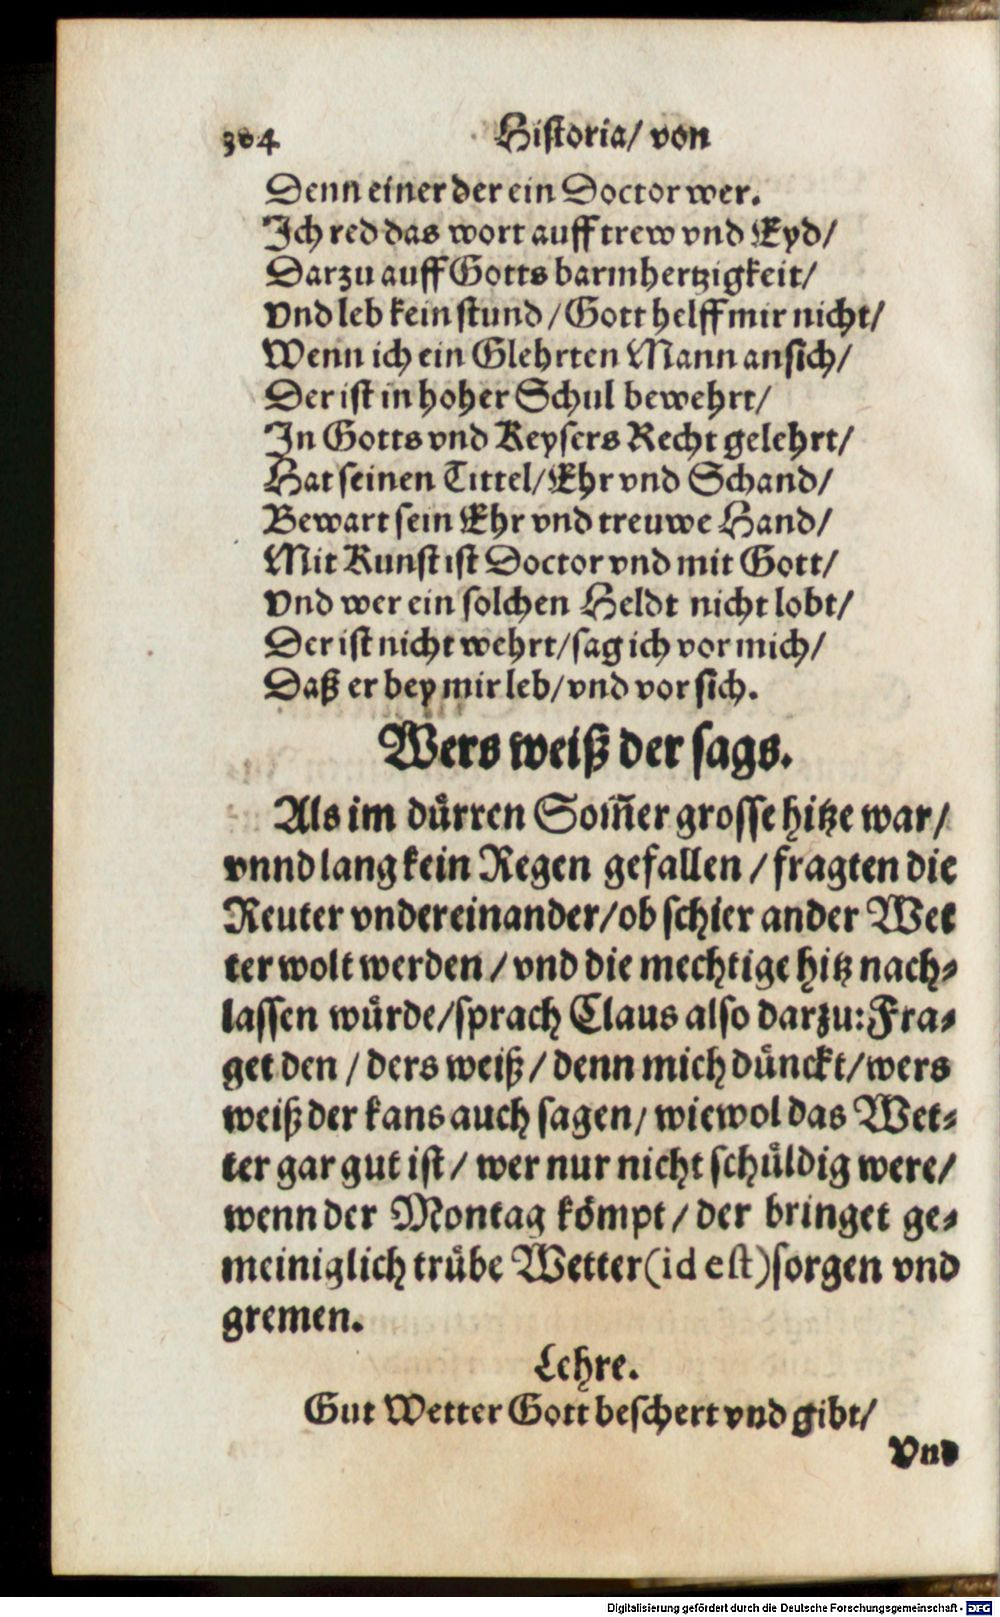 304 Historia/ von
Denn einer der ein Doctor wer.
Ich red das wort auff trew vnd Eyd/
Darzu auff Gotts barmhertzigkeit/
Vnd leb kein stund/ Gott helff mir nicht/
Wenn ich ein Glehrten Mann ansich/
Der ist in hoher Schul bewehrt/
In Gotts vnd Keysers Recht gelehrt/
Hat seinen Tittel/ Ehr vnd Schand/
Bewart sein Ehr vnd treuwe Hand/
Mit Kunst ist Doctor vnd mit Gott/
Vnd wer ein solchen Heldt nicht lobt/
Der ist nicht wehrt/ sag ich vor mich/
Daß er bey mir leb/ vnd vor sich.
Wers weiß der sags.
Als im duͤrren Som̃er grosse hitze war/
vnnd lang kein Regen gefallen/ fragten die
Reuter vndereinander/ ob schier ander Wet
ter wolt werden/ vnd die mechtige hitz nach-
lassen wuͤrde/ sprach Claus also darzu: Fra-
get den/ ders weiß/ denn mich duͤnckt/ wers
weiß der kans auch sagen/ wiewol das Wet-
ter gar gut ist/ wer nur nicht schuͤldig were/
wenn der Montag koͤmpt/ der bringet ge-
meiniglich truͤbe Wetter (id est) sorgen vnd
gremen.
Lehre.
Gut Wetter Gott beschert vnd gibt/
Vnd
Digitalisierung gefördert durch die Deutsche Forschungsgemeinschaft - DFG